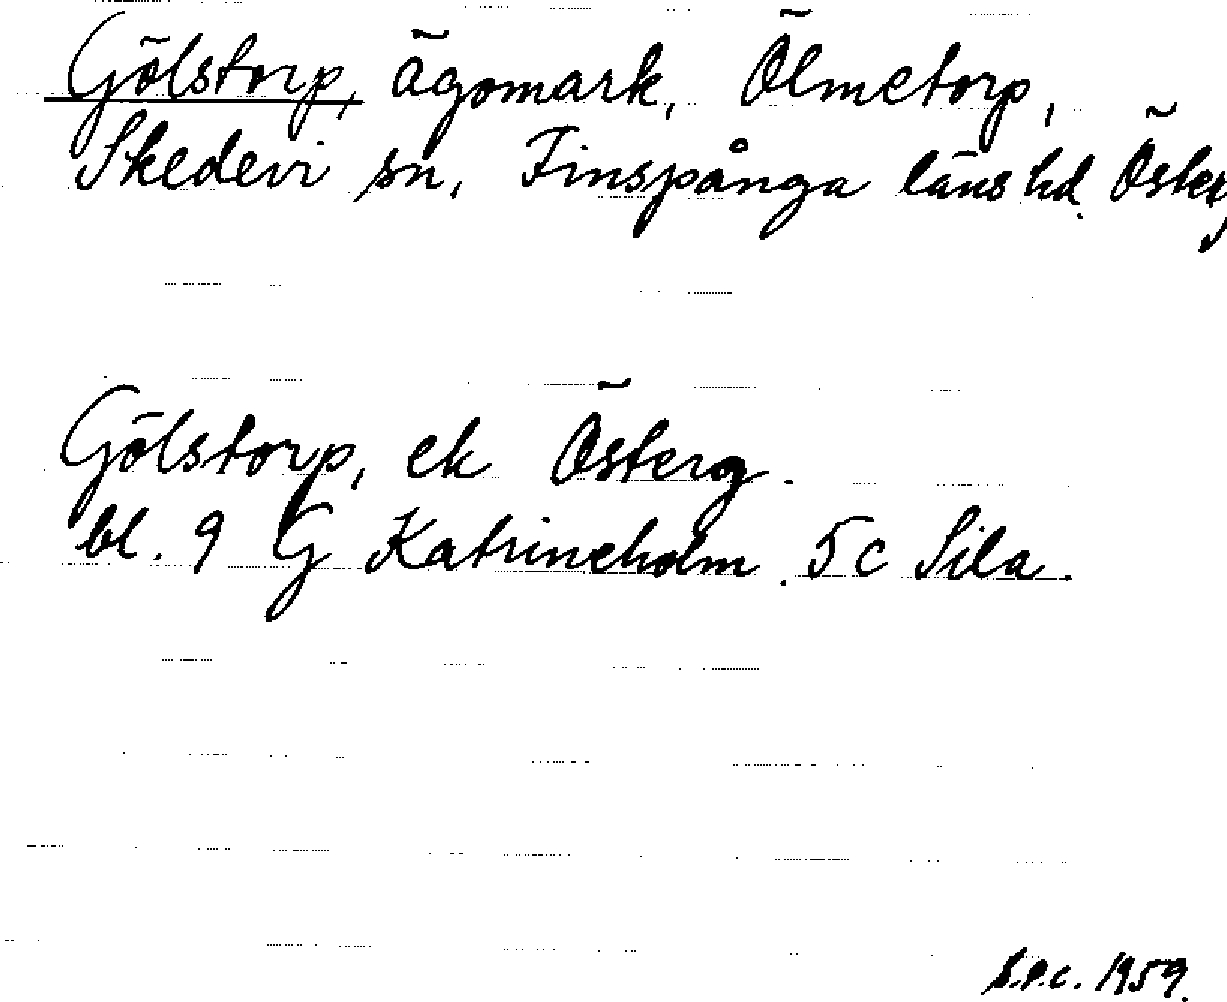 Gölstorp, ägomark, Ölmetorp,
Skedevi sn, Finspånga läns hd. Österg
Gölstorp, ek Österg.
bl. 9 G Katrineholm. 5c Sila.
S.P.C. 1959.